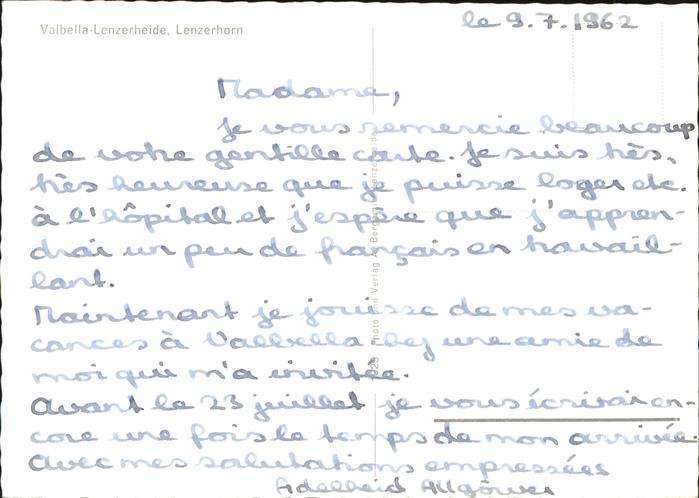 Valbella-Lenzerheide, Lenzerhorn
le 9.7.1962
Madame,
je vous remercie beaucoup
de votre gentille carte. Je suis très,
très heureuse que je puisse loger etc.
à l'hôpital et j'espère que j'appren-
drai un peu de français en travail-
lant.
Maintenant je jouisse de mes va-
cances à Valbella chez une amie de
moi qui m'a invitée.
Avant le 23 juillet je vous écrirai en-
core une fois le temps de mon arrivée.
Avec mes salutations empressées
Adelheid Allgöwer
Photo und Verlag